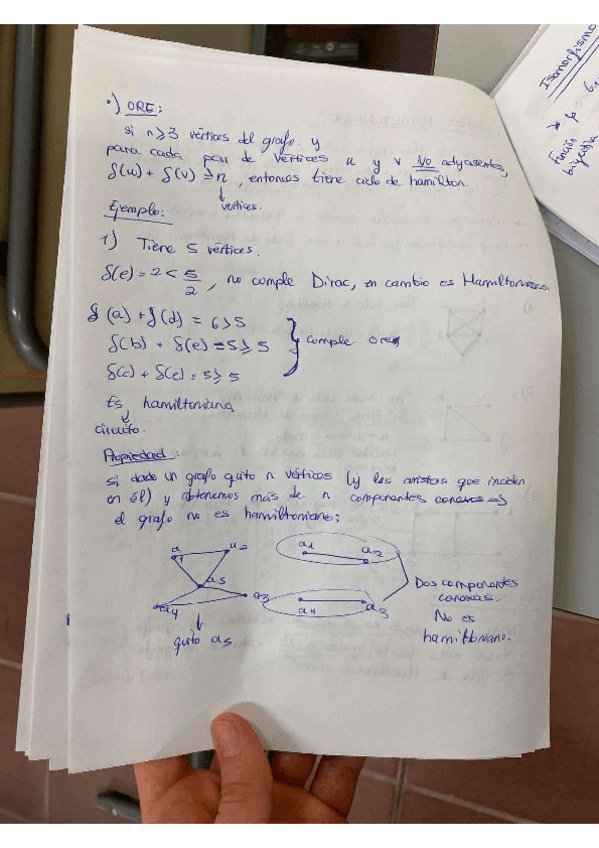 •) ORE:
si n≥3 vértices del grafo y
para cada par de vértices u y v No adyasentes,
δ(u) + δ(v) ≥n, entonces tiene ciclo de hamilton.
↓
vertices.
Ejemplo:
1) Tiene 5 vértices.
δ(e) = 2 < 5/2, no comple Dirac, en cambio es Hamiltoniano
δ(a) + δ(d) = 6≥5
δ(b) + δ(e) = 5≥5 } comple ore
δ(c) + δ(e) = 5≥5
Es hamiltoniano
↓
circuito.
Propiedad:
si dado un grafo quito n vértices (y las aristas que inciden
en él) y obtenemos más de n componentes conexas =>
el grafo no es hamiltoniano:
a1 a2 a1 a2
a5
a3
a4 a4 a3
↓
quito a5
Dos componentes
conexas.
No es
hamiltoniano.
Isomorfismo
Función
biyectiva